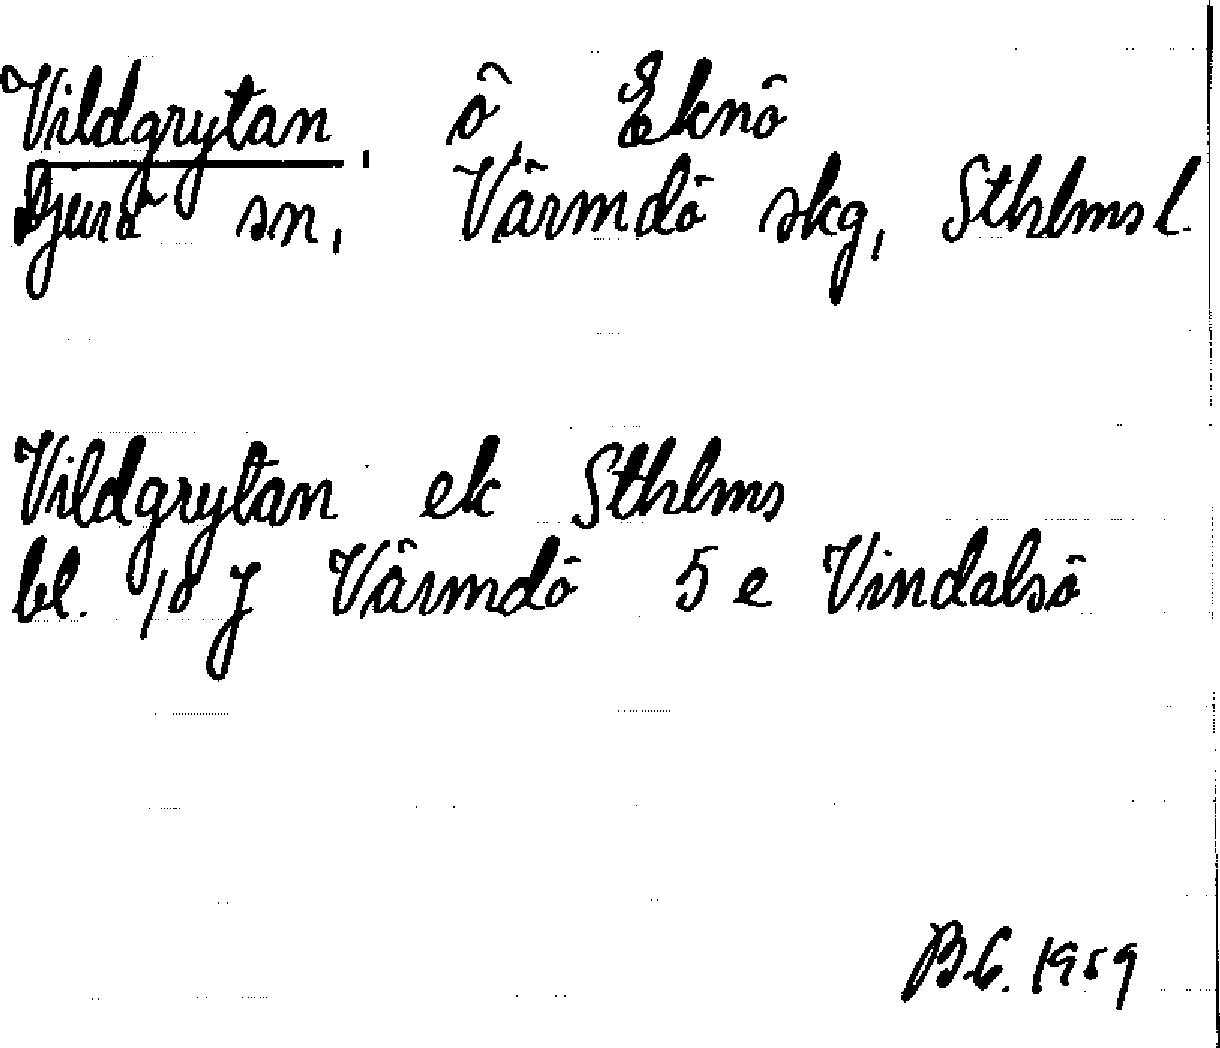 Vildgrytan, ö, Eknö
Djurö sn, Värmdö skg, Sthlms l.
Vildgrytan ek Sthlms
bl. 10 J Värmdö 5 e Vindalsö
B.G. 1959